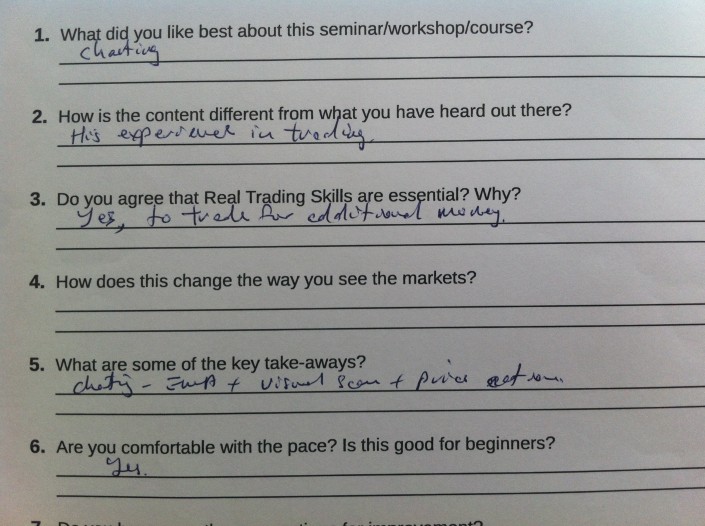 1. What did you like best about this seminar/workshop/course?
Charting
2. How is the content different from what you have heard out there?
His experience in trading.
3. Do you agree that Real Trading Skills are essential? Why?
Yes, to trade for additional money.
4. How does this change the way you see the markets?
5. What are some of the key take-aways?
chating - EMA + visual scan + price action.
6. Are you comfortable with the pace? Is this good for beginners?
Yes.